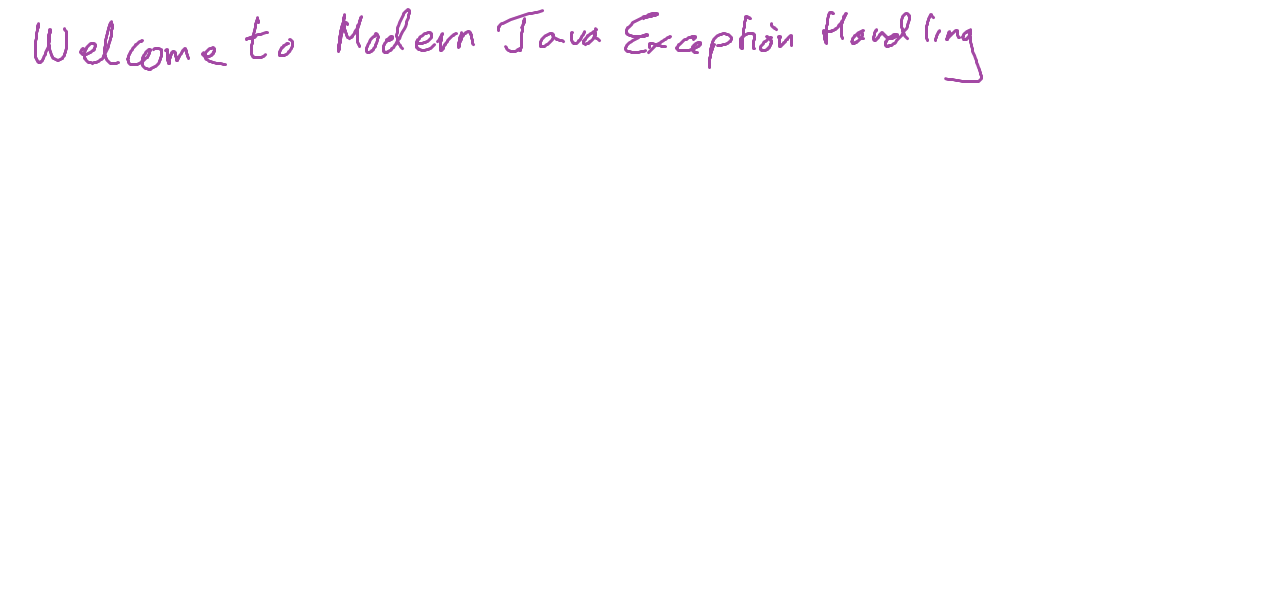 Welcome to Modern Java Exception Handling